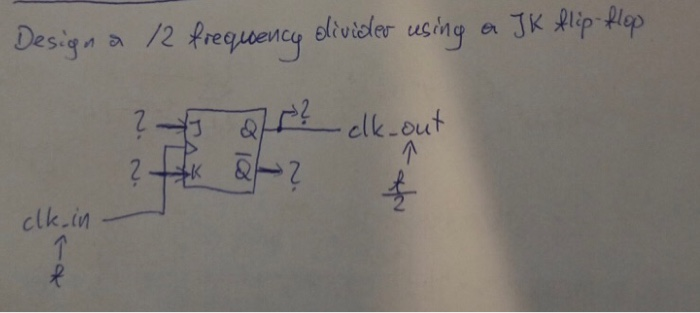 Design a /2 frequency divider using a JK flip-flop
? J Q ? clk_out
? K Q̅ ?
f/2
clk_in
f